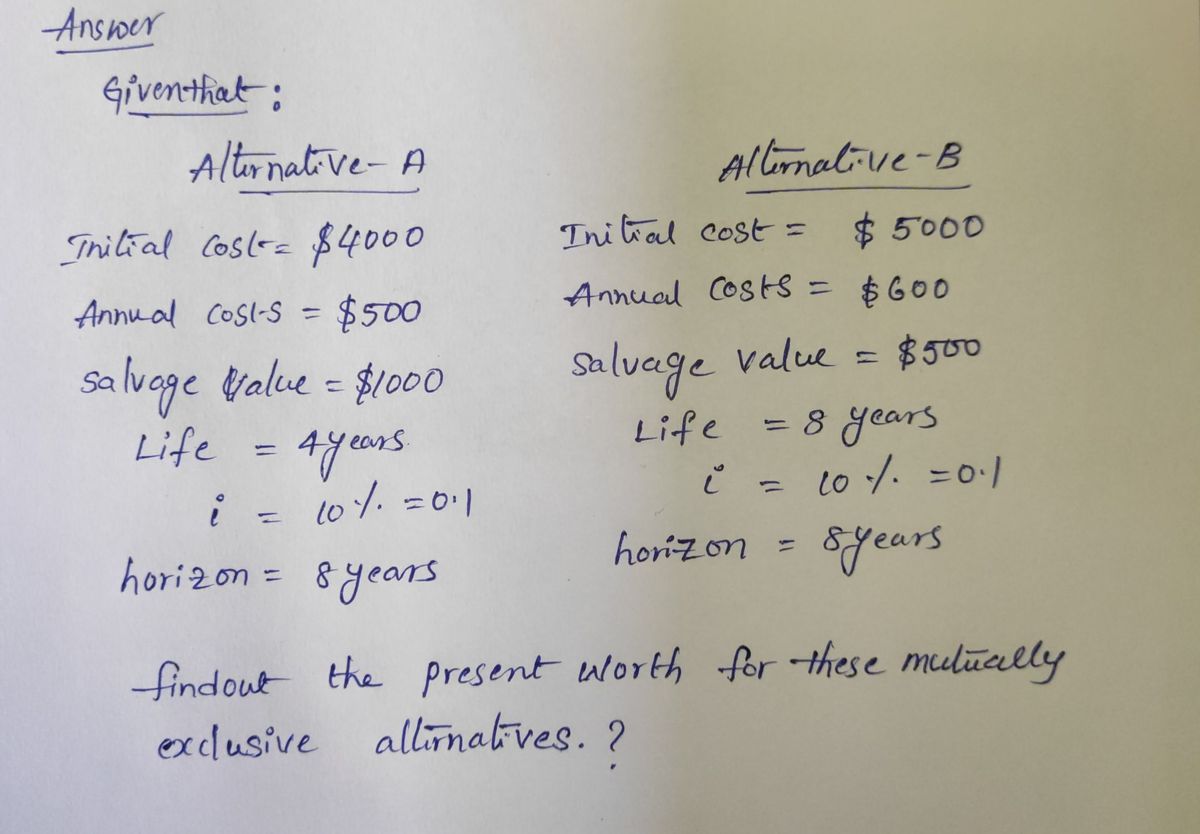 Answer
Given that :
Alternative - A
Alternative - B
Initial cost = $4000
Initial cost = $ 5000
Annual costs = $500
Annual costs = $600
salvage value = $1000
salvage value = $500
Life = 4 years.
Life = 8 years
i = 10 % = 0.1
i = 10 % = 0.1
horizon = 8 years
horizon = 8 years
findout the present worth for these mutually
exclusive alternatives. ?